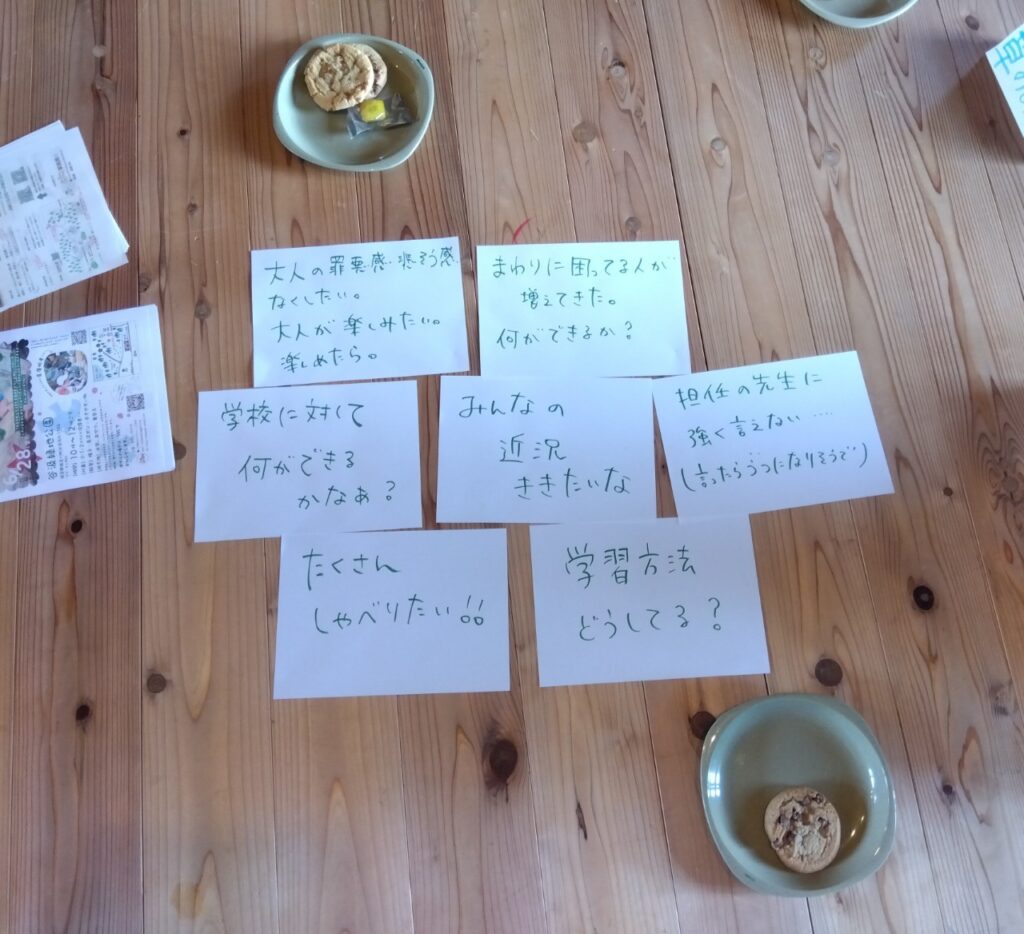 大人の罪悪感・悲そう感
なくしたい。
大人が楽しみたい。
楽しめたら。
まわりに困ってる人が
増えてきた。
何ができるか？
学校に対して
何ができる
かなぁ？
みんなの
近況
ききたいな
担任の先生に
強く言えない‥‥
(言ったらうつになりそうで)
たくさん
しゃべりたい!!
学習方法
どうしてる？
6/28
谷汲緑地公園